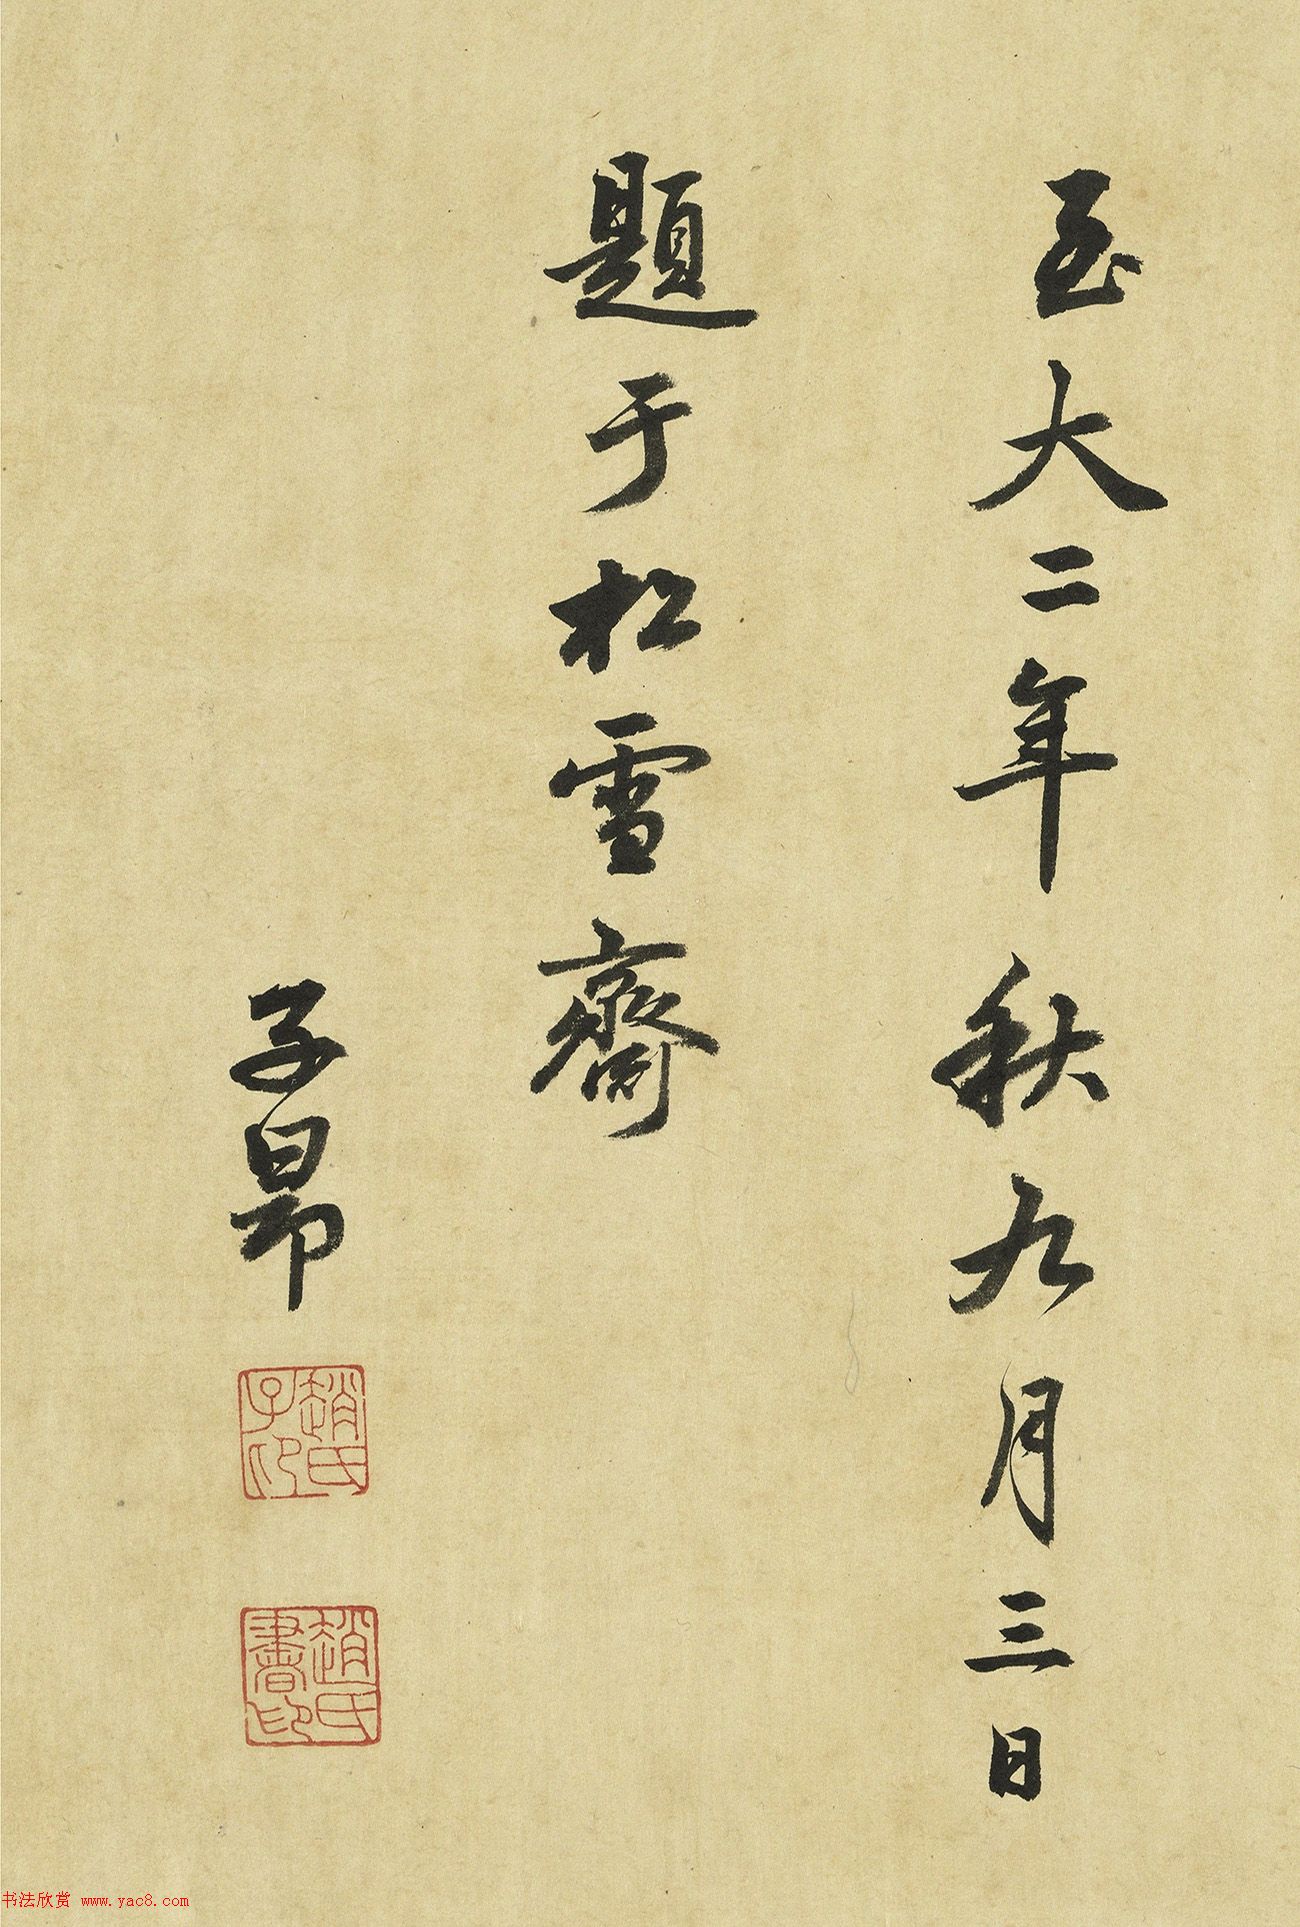 至大二年秋九月三日
題于松雪齋
子昂
趙氏子印
趙氏書印
书法欣赏 www.yac8.com